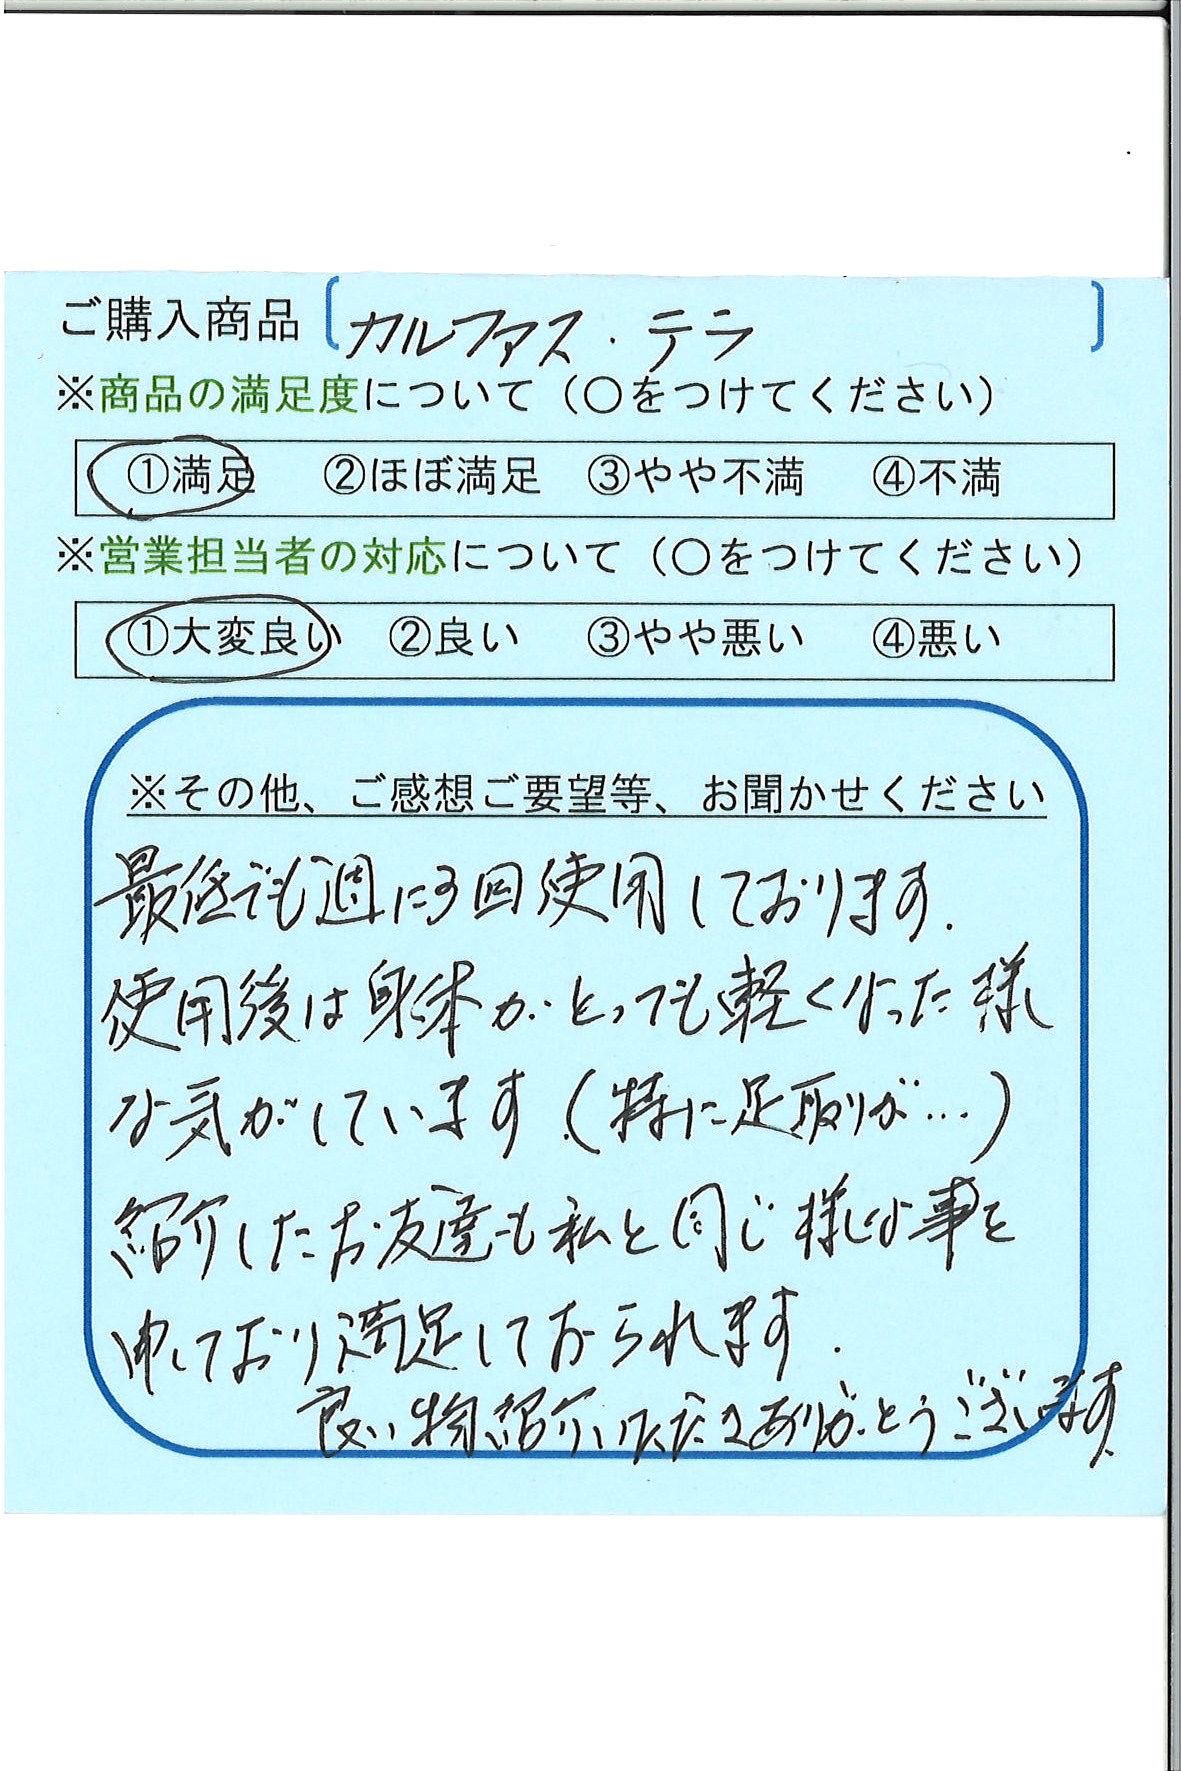 ご購入商品 [カルファス・テラ]
※商品の満足度について（○をつけてください）
①満足 ②ほぼ満足 ③やや不満 ④不満
※営業担当者の対応について（○をつけてください）
①大変良い ②良い ③やや悪い ④悪い
※その他、ご感想ご要望等、お聞かせください
最低でも週に3回使用しております.
使用後は身体がとっても軽くなった様
な気がしています.(特に足取りが…)
紹介したお友達も私と同じ様な事を
申しており満足しておられます.
良い物紹介いただきありがとうございます.